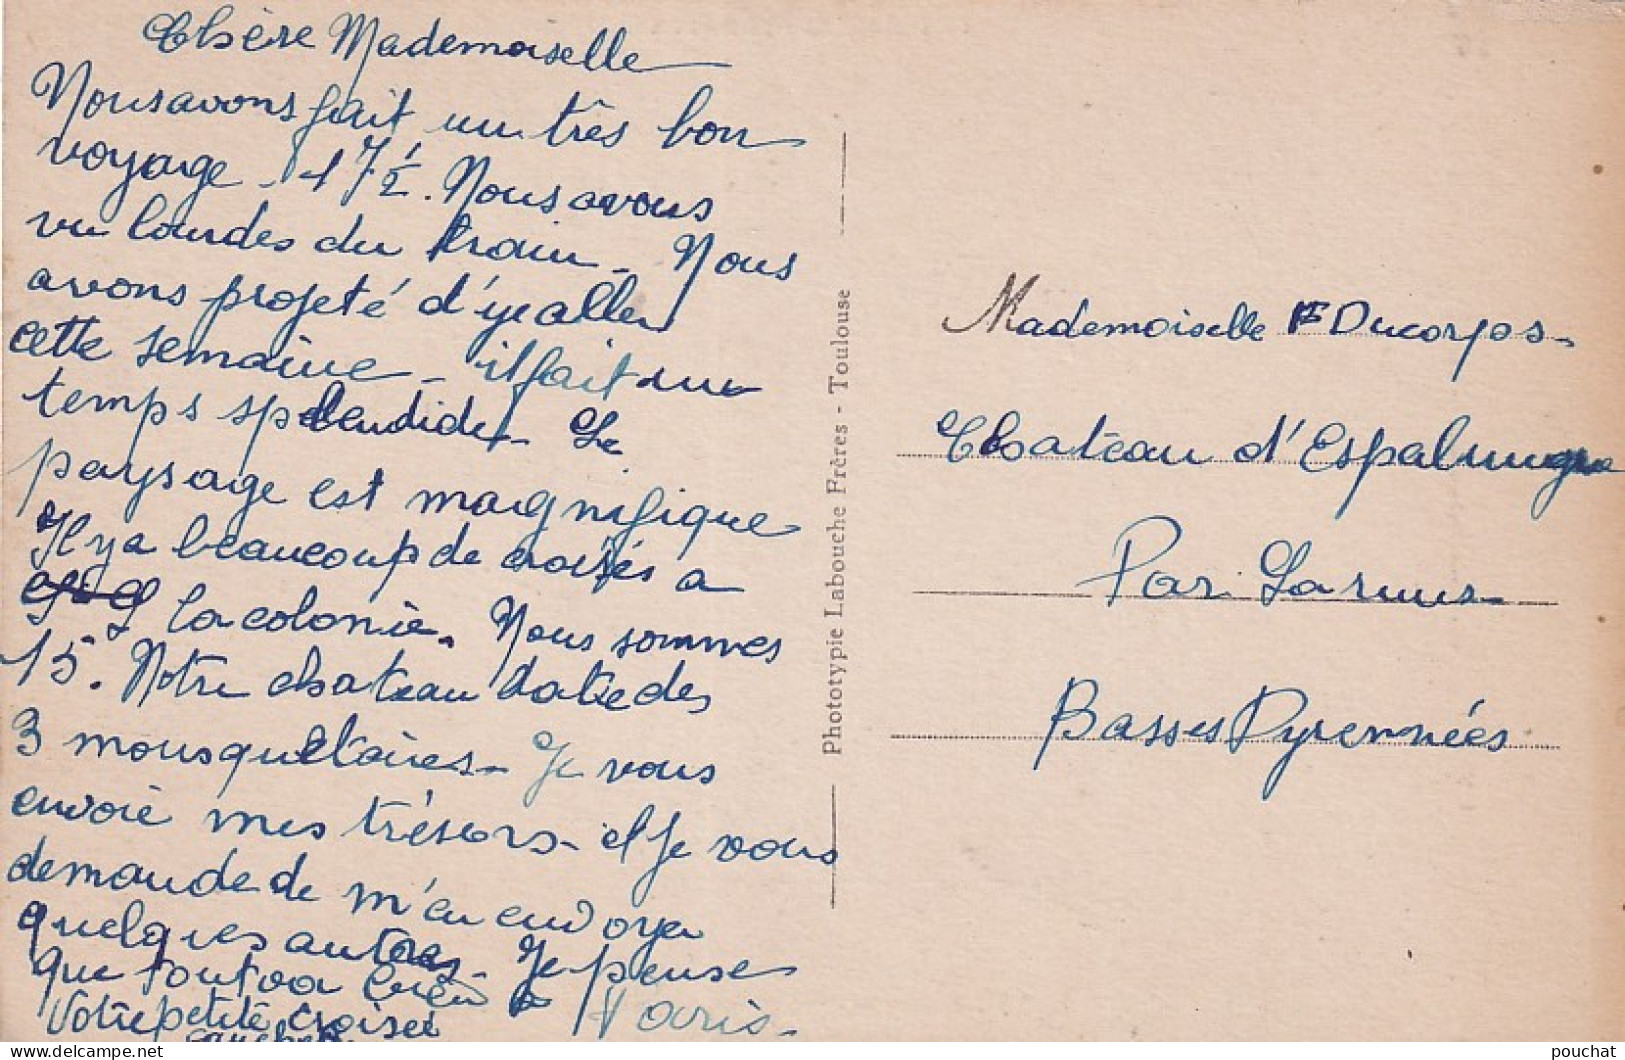 Chère Mademoiselle
Nous avons fait un très bon
voyage - 17 1/2. Nous avons
vu Lourdes du train - Nous
avons projeté d'y aller
cette semaine - il fait un
temps splendide - Le
paysage est magnifique
Il y a beaucoup de croisés a
la colonie. Nous sommes
15. Notre chateau date des
3 mousquetaires - Je vous
envoie mes trésors - et je vous
demande de m'en envoyer
quelques autres - Je pense
que tout va bien a Paris -
Votre petite croisée
Phototypie Labouche Frères - Toulouse
Mademoiselle F Ducorps -
Chateau d'Espalungue
Par Laruns -
Basses Pyrennées
pouchat